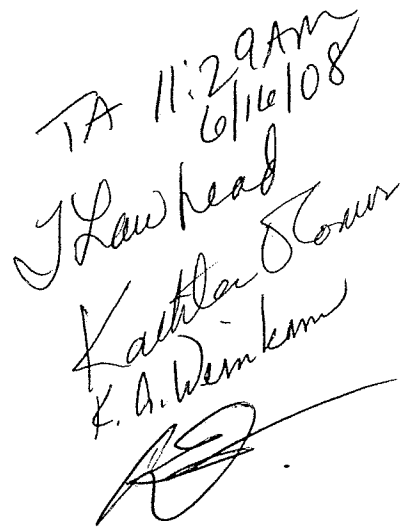 TA 11:29 AM
6/16/08
J Lawhead
Kathleen O'Connor
K. A. Weinkam